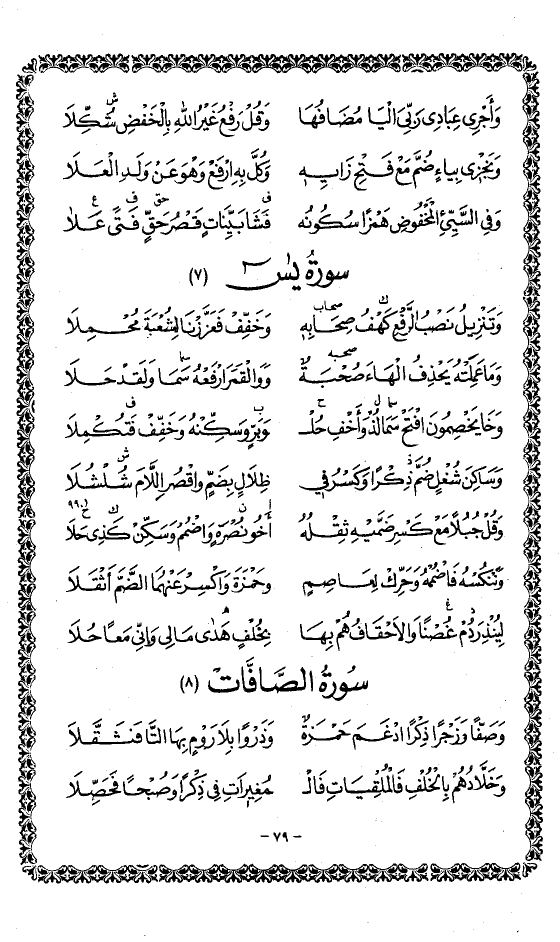 وَأَجْرِى عِبَادِى رَبِّىَ الْيَا مُضَافُهَا وَقُلْ رَفْعُ غَيْرُ اللهِ بِالْخَفْضِ شُكِّلَا
وَيُجْزَى بِيَاءٍ ضُمَّ مَعْ فَتْحِ زَايِهِ وَكُلَّ بِهِ ارْفَعْ وَهْوَ عَنْ وَلَدِ الْعَلَا
وَفِى السَّيِّئِ الْمَخْفُوضِ هَمْزًا سُكُونُهُ فَشَا بَيِّنَاتٍ قَصْرُ حَقٍّ فَتًى عَلَا
سورة يس (٧)
وَتَنْزِيلُ نَصْبُ الرَّفْعِ كَهْفُ صِحَابِهِ وَخَفِّفْ فَعَزَّزْنَا لِشُعْبَةَ مُحْمِلَا
وَمَا عَمِلَتْهُ يَحْذِفُ الْهَاءَ صُحْبَةٌ وَوَالْقَمَرَ ارْفَعْهُ سَمَا وَلَقَدْ حَلَا
وَخَا يَخْصِمُونَ افْتَحْ سَمَا لُذْ وَأَخْفِ حُلْـ ـوَ بَرٍّ وَسَكِّنْهُ وَخَفِّفْ فَتُكْمِلَا
وَسَاكِنَ شُغْلٍ ضُمَّ ذِكْرًا وَكَسْرُ فِى ظِلَالٍ بِضَمٍّ وَاقْصُرِ اللَّامَ شُلْشُلَا
وَقُلْ جُبُلًا مَعْ كَسْرِ ضَمَّيْهِ ثِقْلُهُ أَخُو نُصْرَةٍ وَاضْمُمْ وَسَكِّنْ كَذِى حَلَا
وَنَنْكُسْهُ فَاضْمُمْهُ وَحَرِّكْ لِعَاصِمٍ وَحَمْزَةَ وَاكْسِرْ عَنْهُمَا الضَّمَّ أَثْقَلَا
لِيُنْذِرَ دُمْ غُصْنًا وَالْاَحْقَافُ هُمْ بِهَا بِخُلْفٍ هَدَى مَالِى وَإِنِّى مَعًا حُلَا
سورة الصافات (٨)
وَصَفًّا وَزَجْرًا ذِكْرًا ادْغَمَ حَمْزَةٌ وَذَرْوًا بِلَا رَوْمٍ بِهَا التَّا فَثَقَّلَا
وَخَلَّادُهُمْ بِالْخُلْفِ فَالْمُلْقِيَاتِ فَالْـ ـمُغِيرَاتِ فِى ذِكْرًا وَصُبْحًا فَحَصِّلَا
- ٧٩ -